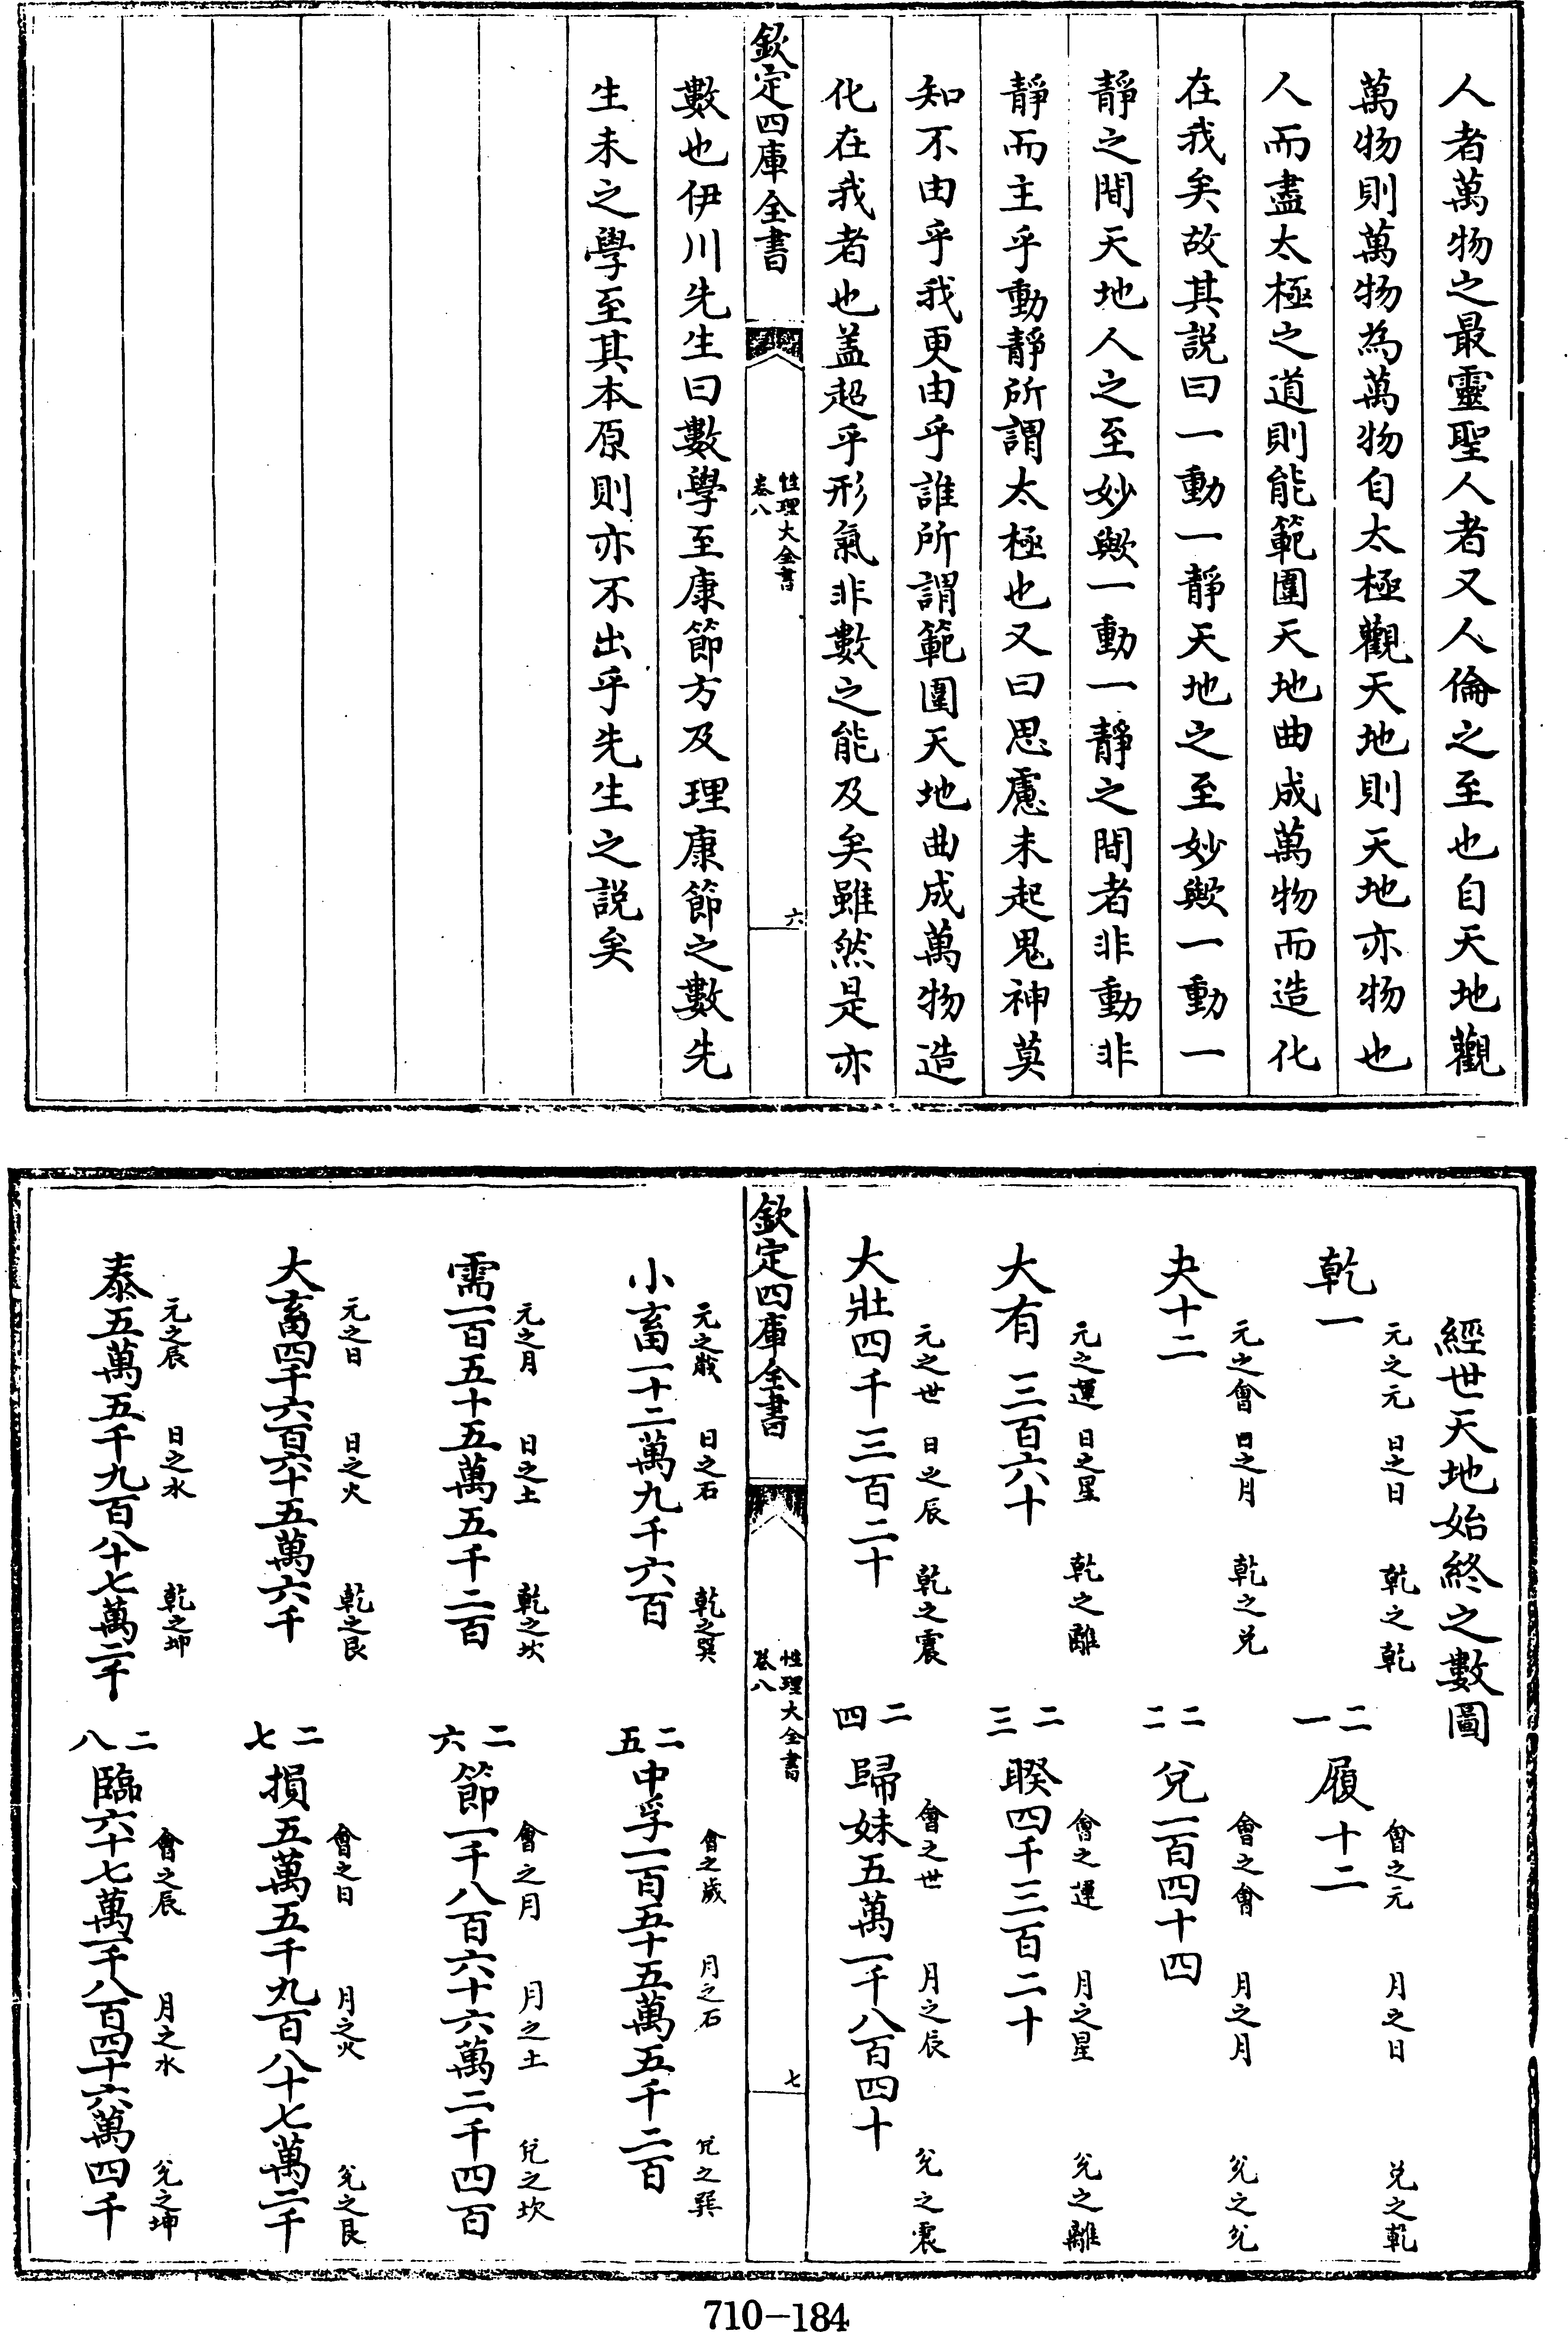 人者萬物之最靈聖人者又人倫之至也自天地觀
萬物則萬物為萬物自太極觀天地則天地亦物也
人而盡太極之道則能範圍天地曲成萬物而造化
在我矣故其説曰一動一靜天地之至妙歟一動一
靜之間天地人之至妙歟一動一靜之間者非動非
靜而主乎動靜所謂太極也又曰思慮未起鬼神莫
知不由乎我更由乎誰所謂範圍天地曲成萬物造
化在我者也盖超乎形氣非數之能及矣雖然是亦
欽定四庫全書
性理大全書
卷八
六
數也伊川先生曰數學至康節方及理康節之數先
生未之學至其本原則亦不出乎先生之説矣
經世天地始終之數圖
元之元 日之日 乾之乾
乾一
二一
會之元 月之日 兑之乾
履十二
元之會 日之月 乾之兑
夬十二
二二
會之會 月之月 兑之兑
兌一百四十四
元之運 日之星 乾之離
大有三百六十
二三
會之運 月之星 兑之離
睽四千三百二十
元之世 日之辰 乾之震
大壯四千三百二十
二四
會之世 月之辰 兑之震
歸妹五萬一千八百四十
欽定四庫全書
性理大全書
卷八
七
元之歲 日之石 乾之巽
小畜一十二萬九千六百
二五
會之歲 月之石 兑之巽
中孚一百五十五萬五千二百
元之月 日之土 乾之坎
需一百五十五萬五千二百
二六
會之月 月之土 兑之坎
節一千八百六十六萬二千四百
元之日 日之火 乾之艮
大畜四千六百六十五萬六千
二七
會之日 月之火 兑之艮
損五萬五千九百八十七萬二千
元之辰 日之水 乾之坤
泰五萬五千九百八十七萬二千
二八
會之辰 月之水 兑之坤
臨六十七萬一千八百四十六萬四千
710-184